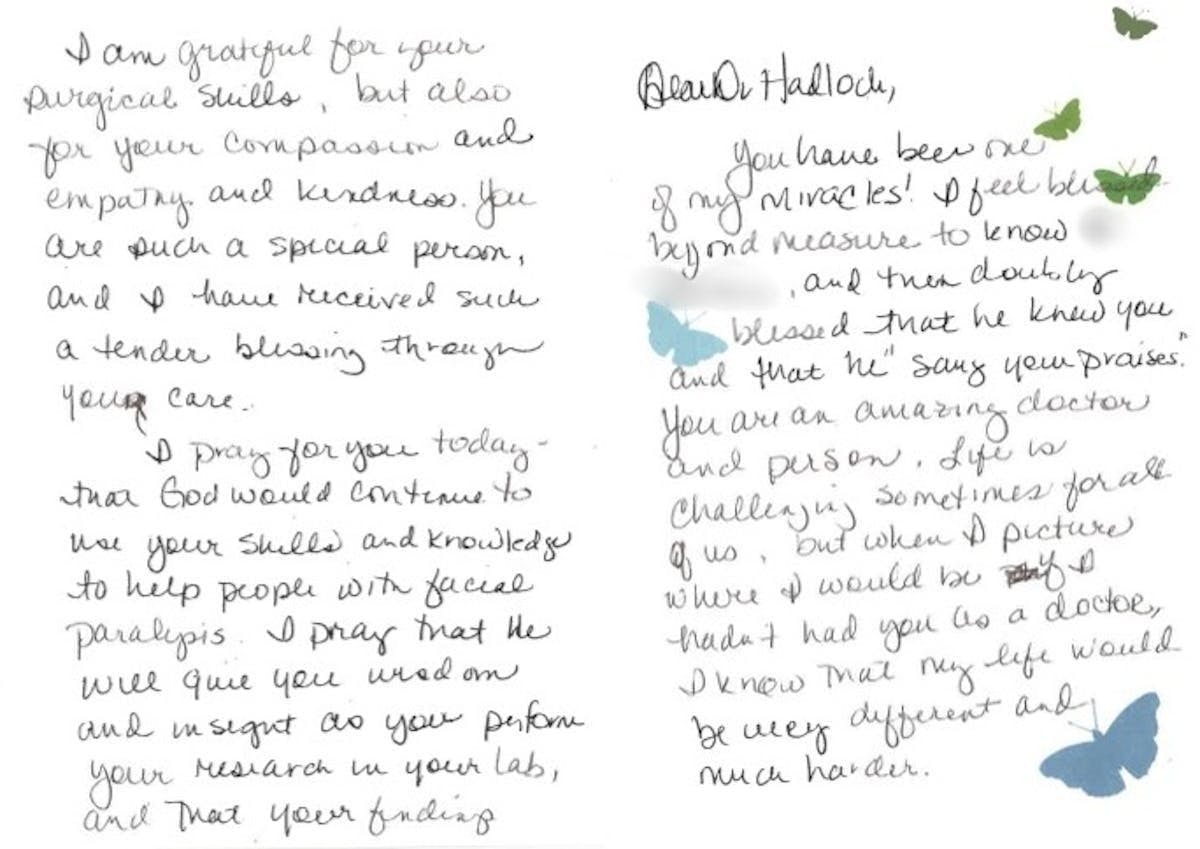 Dear Dr Hadlock,
You have been one
of my miracles! I feel blessed
beyond measure to know
, and then doubly
blessed that he knew you
and that he "sang your praises."
You are an amazing doctor
and person. Life is
challenging sometimes for all
of us, but when I picture
where I would be if I
hadn't had you as a doctor,
I know that my life would
be very different and
much harder.
I am grateful for your
surgical skills, but also
for your compassion and
empathy and kindness. You
are such a special person,
and I have received such
a tender blessing through
your care.
I pray for you today -
that God would continue to
use your skills and knowledge
to help people with facial
paralysis. I pray that He
will give you wisdom
and insight as you perform
your research in your lab,
and that your finding